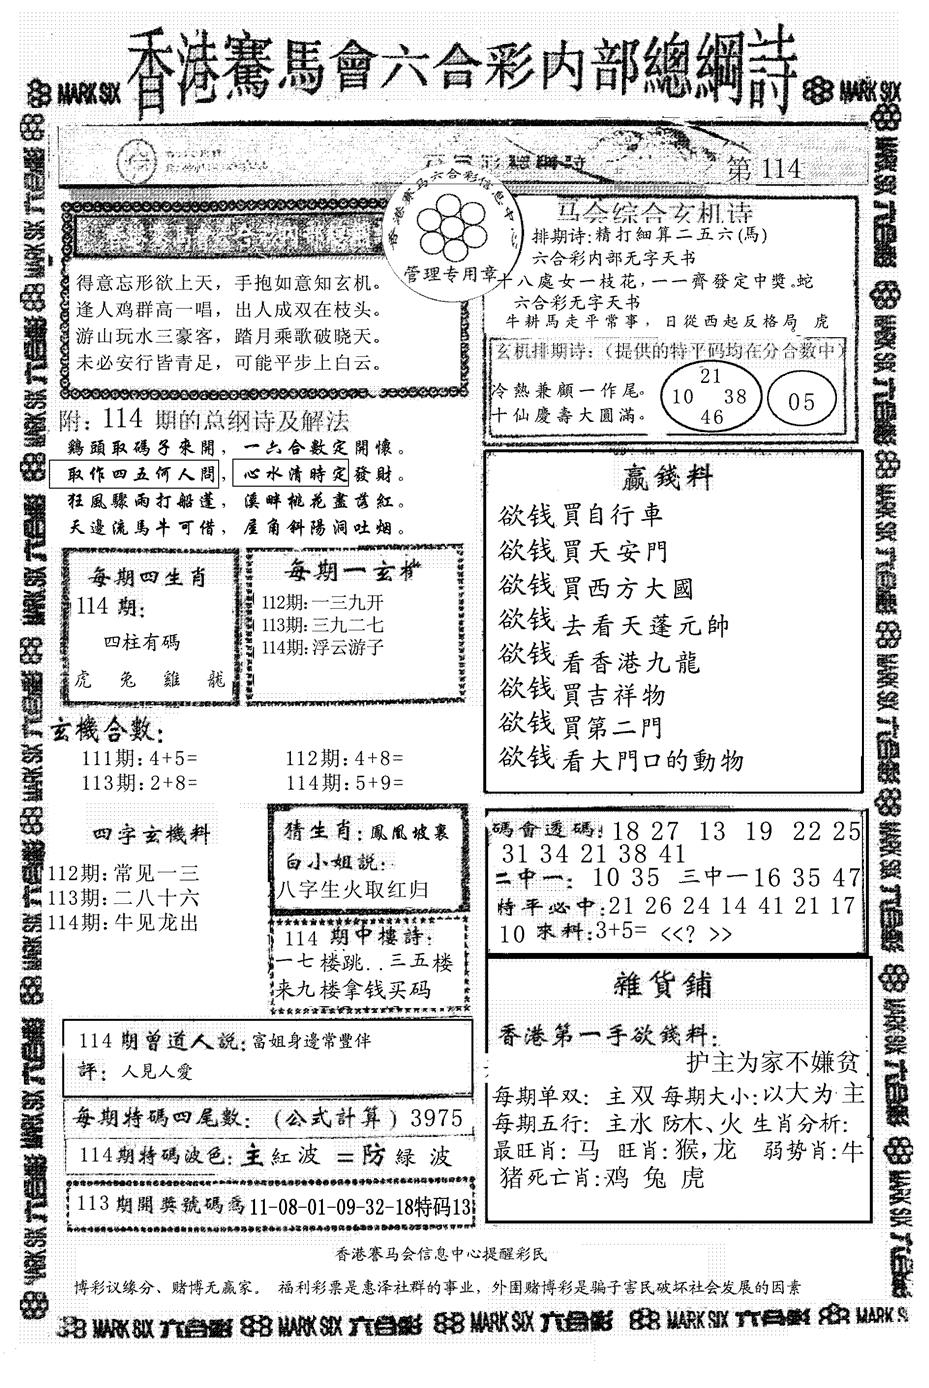 香港賽馬會六合彩内部總綱詩
MARK SIX
MARK SIX
第 114
香港赛马六合彩信息中
管理专用章
得意忘形欲上天，手抱如意知玄机。
逢人鸡群高一唱，出人成双在枝头。
游山玩水三豪客，踏月乘歌破晓天。
未必安行皆青足，可能平步上白云。
附：114 期的总纲诗及解法
鷄頭取碼子來開，一六合數定開懷。
取作四五何人問，心水清時定發財。
狂風驟雨打船蓬，溪畔桃花盡落紅。
天邊流馬牛可借，屋角斜陽洞吐烟。
每期四生肖
114 期：
四柱有碼
虎 兔 雞 龍
每期一玄机
112期：一三九开
113期：三九二七
114期：浮云游子
玄機合數：
111期：4+5= 112期：4+8=
113期：2+8= 114期：5+9=
四字玄機料
112期：常见一三
113期：二八十六
114期：牛见龙出
猜生肖：鳳凰坡裏
白小姐説：
八字生火取红归
114 期中樓詩：
一七楼跳..三五楼
来九楼拿钱买码
114 期曾道人説：富姐身邊常豐伴
評：人見人愛
每期特碼四尾數：（公式計算）3975
114期特碼波色：主紅波 =防 緑 波
113 期開獎號碼爲11-08-01-09-32-18特码13
马会综合玄机诗
排期诗：精打細算二五六(馬)
六合彩内部无字天书
十八處女一枝花，一一齊發定中獎。蛇
六合彩无字天书
牛耕馬走平常事，日從西起反格局 虎
玄机排期诗：（提供的特平码均在分合数中）
冷熱兼顧一作尾。
十仙慶壽大圓滿。
21
10 38
46
05
贏錢料
欲钱買自行車
欲钱買天安門
欲钱買西方大國
欲钱去看天蓬元帥
欲钱看香港九龍
欲钱買吉祥物
欲钱買第二門
欲钱看大門口的動物
碼會透碼：18 27 13 19 22 25
31 34 21 38 41
二中一：10 35 三中一16 35 47
特平必中：21 26 24 14 41 21 17
10 來料：3+5= <<? >>
雜貨鋪
香港第一手欲錢料：
护主为家不嫌贫
每期单双：主双 每期大小：以大为主
每期五行：主水 防木、火 生肖分析：
最旺肖：马 旺肖：猴，龙 弱势肖：牛
猪死亡肖：鸡 兔 虎
香港賽马会信息中心提醒彩民
博彩议缘分、赌博无赢家。 福利彩票是惠泽社群的事业，外围赌博彩是骗子害民破坏社会发展的因素
MARK SIX 六合彩 MARK SIX 六合彩 MARK SIX 六合彩 MARK SIX 六合彩 MARK SIX